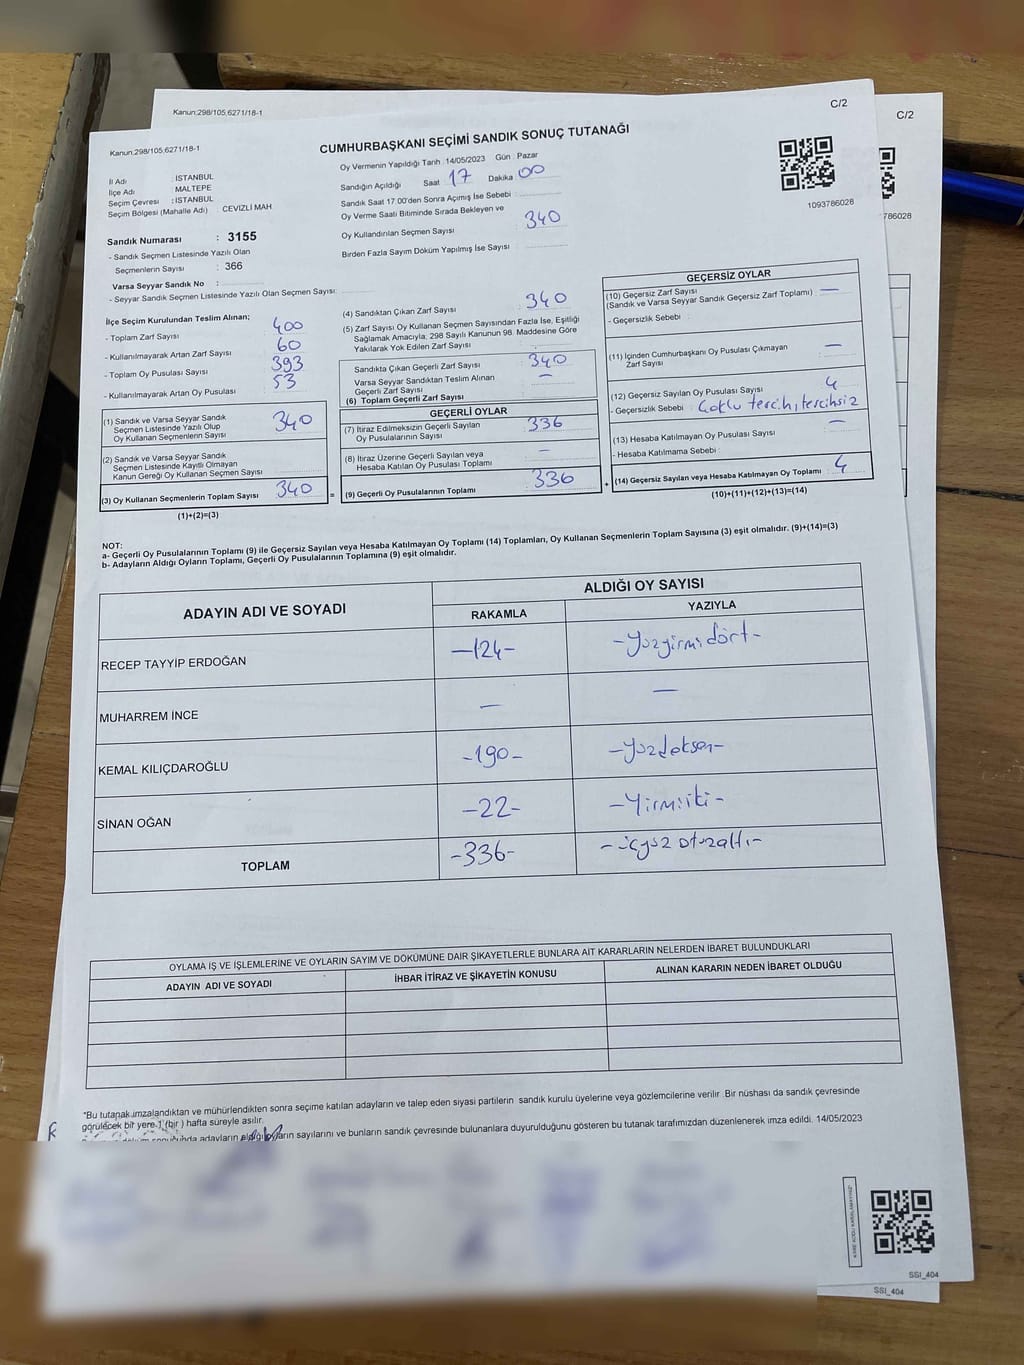 Kanun:298/105,6271/18-1
C/2
C/2
Kanun:298/105,6271/18-1
CUMHURBAŞKANI SEÇİMİ SANDIK SONUÇ TUTANAĞI
Oy Vermenin Yapıldığı Tarih : 14/05/2023 Gün : Pazar
İl Adı : İSTANBUL
İlçe Adı MALTEPE
Seçim Çevresi : İSTANBUL
Seçim Bölgesi (Mahalle Adı) : CEVİZLİ MAH
Sandığın Açıldığı Saat 17 Dakika 00
Sandık Saat 17.00'den Sonra Açımış İse Sebebi :
Oy Verme Saati Bitiminde Sırada Bekleyen ve
Oy Kullandırılan Seçmen Sayısı 340
Birden Fazla Sayım Döküm Yapılmış İse Sayısı
1093786028
786028
Sandık Numarası : 3155
- Sandık Seçmen Listesinde Yazılı Olan
Seçmenlerin Sayısı : 366
Varsa Seyyar Sandık No :
- Seyyar Sandık Seçmen Listesinde Yazılı Olan Seçmen Sayısı:
İlçe Seçim Kurulundan Teslim Alınan;
- Toplam Zarf Sayısı 400
- Kullanılmayarak Artan Zarf Sayısı 60
- Toplam Oy Pusulası Sayısı 393
- Kullanılmayarak Artan Oy Pusulası 53
(1) Sandık ve Varsa Seyyar Sandık
Seçmen Listesinde Yazılı Olup
Oy Kullanan Seçmenlerin Sayısı 340
(2) Sandık ve Varsa Seyyar Sandık
Seçmen Listesinde Kayıtlı Olmayan
Kanun Gereği Oy Kullanan Seçmen Sayısı
(3) Oy Kullanan Seçmenlerin Toplam Sayısı 340 =
(1)+(2)=(3)
(4) Sandıktan Çıkan Zarf Sayısı 340
(5) Zarf Sayısı Oy Kullanan Seçmen Sayısından Fazla İse, Eşitliği
Sağlamak Amacıyla; 298 Sayılı Kanunun 98. Maddesine Göre
Yakılarak Yok Edilen Zarf Sayısı
Sandıkta Çıkan Geçerli Zarf Sayısı 340
Varsa Seyyar Sandıktan Teslim Alınan
Geçerli Zarf Sayısı —
(6) Toplam Geçerli Zarf Sayısı
GEÇERLİ OYLAR
(7) İtiraz Edilmeksizin Geçerli Sayılan
Oy Pusulalarının Sayısı 336
(8) İtiraz Üzerine Geçerli Sayılan veya
Hesaba Katılan Oy Pusulası Toplamı —
(9) Geçerli Oy Pusulalarının Toplamı 336 +
GEÇERSİZ OYLAR
(10) Geçersiz Zarf Sayısı
(Sandık ve Varsa Seyyar Sandık Geçersiz Zarf Toplamı) —
- Geçersizlik Sebebi :
(11) İçinden Cumhurbaşkanı Oy Pusulası Çıkmayan
Zarf Sayısı —
(12) Geçersiz Sayılan Oy Pusulası Sayısı 4
- Geçersizlik Sebebi : Çoklu tercih, tercihsiz
(13) Hesaba Katılmayan Oy Pusulası Sayısı —
- Hesaba Katılmama Sebebi :
(14) Geçersiz Sayılan veya Hesaba Katılmayan Oy Toplamı : 4
(10)+(11)+(12)+(13)=(14)
NOT:
a- Geçerli Oy Pusulalarının Toplamı (9) ile Geçersiz Sayılan veya Hesaba Katılmayan Oy Toplamı (14) Toplamları, Oy Kullanan Seçmenlerin Toplam Sayısına (3) eşit olmalıdır. (9)+(14)=(3)
b- Adayların Aldığı Oyların Toplamı, Geçerli Oy Pusulalarının Toplamına (9) eşit olmalıdır.
ADAYIN ADI VE SOYADI
ALDIĞI OY SAYISI
RAKAMLA YAZIYLA
RECEP TAYYİP ERDOĞAN —124— -Yüzyirmidört-
MUHARREM İNCE — —
KEMAL KILIÇDAROĞLU -190- -Yüzdoksan-
SİNAN OĞAN -22- -Yirmiiki-
TOPLAM -336- -üçyüz otuzaltı-
OYLAMA İŞ VE İŞLEMLERİNE VE OYLARIN SAYIM VE DÖKÜMÜNE DAİR ŞİKAYETLERLE BUNLARA AİT KARARLARIN NELERDEN İBARET BULUNDUKLARI
ADAYIN ADI VE SOYADI İHBAR İTİRAZ VE ŞİKAYETİN KONUSU ALINAN KARARIN NEDEN İBARET OLDUĞU
*Bu tutanak imzalandıktan ve mühürlendikten sonra seçime katılan adayların ve talep eden siyasi partilerin sandık kurulu üyelerine veya gözlemcilerine verilir. Bir nüshası da sandık çevresinde
görülecek bir yere 1 (bir ) hafta süreyle asılır.
adayların aldığı oyların sayılarını ve bunların sandık çevresinde bulunanlara duyurulduğunu gösteren bu tutanak tarafımızdan düzenlenerek imza edildi. 14/05/2023
SSI_404
SSI_404